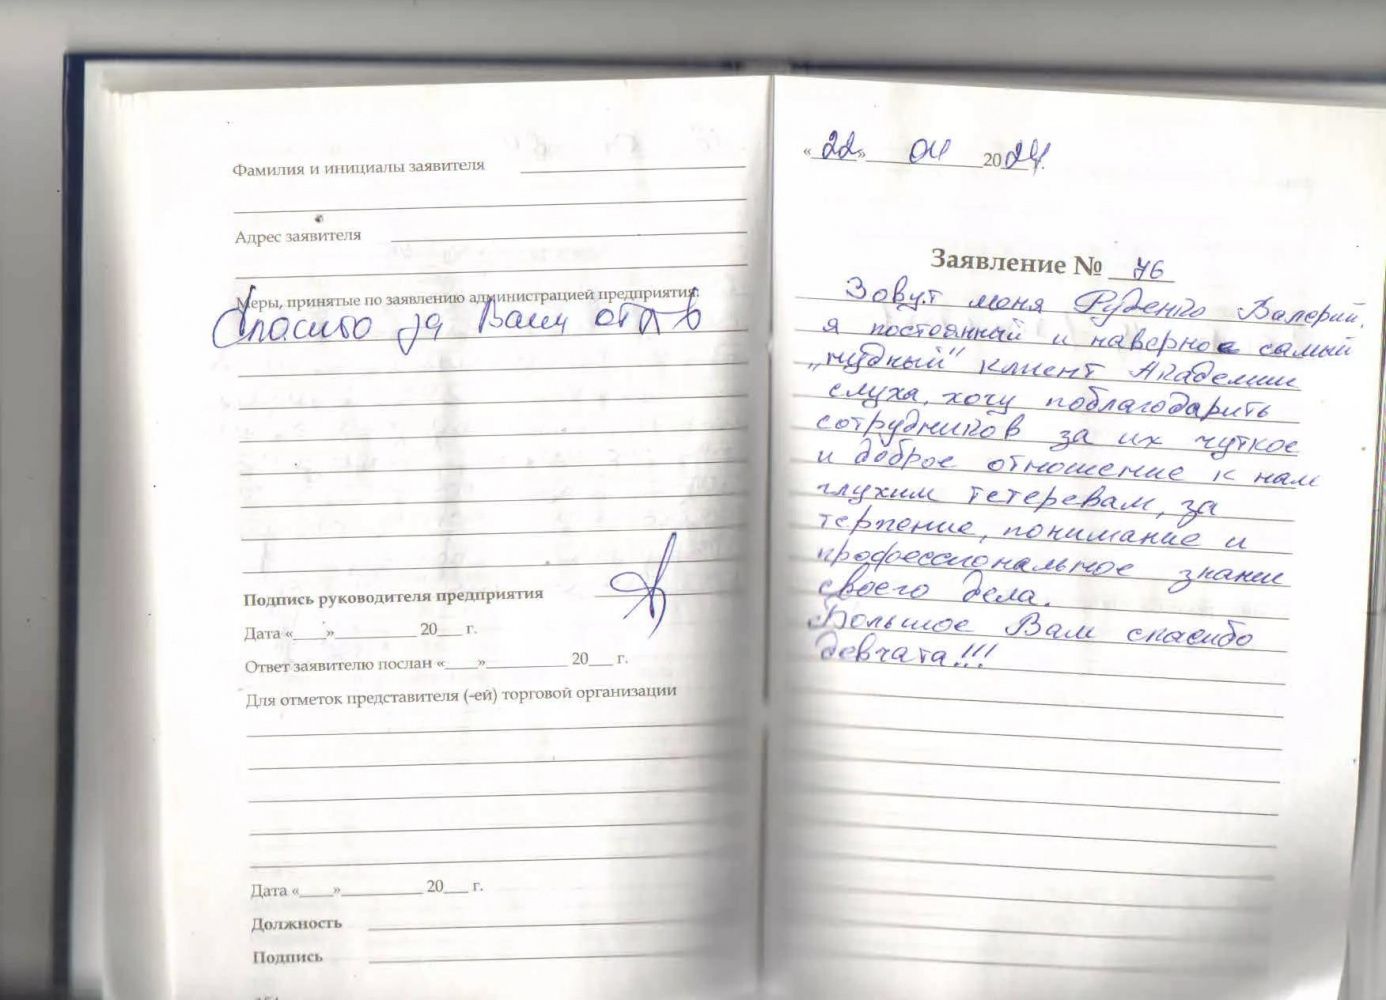 Фамилия и инициалы заявителя
Адрес заявителя
Меры, принятые по заявлению администрацией предприятия:
Спасибо за Ваш отзыв
Подпись руководителя предприятия
Дата «____»__________ 20___ г.
Ответ заявителю послан «____»__________ 20___ г.
Для отметок представителя (-ей) торговой организации
Дата «____»__________ 20___ г.
Должность
Подпись
«22» 04 2024.
Заявление № 76
Зовут меня Руденко Валерий,
я постоянный и наверное самый
„нудный" клиент Академии
слуха, хочу поблагодарить
сотрудников за их чуткое
и доброе отношение к нам
глухим тетеревам, за
терпение, понимание и
профессиональное знание
своего дела.
Большое Вам спасибо
девчата!!!